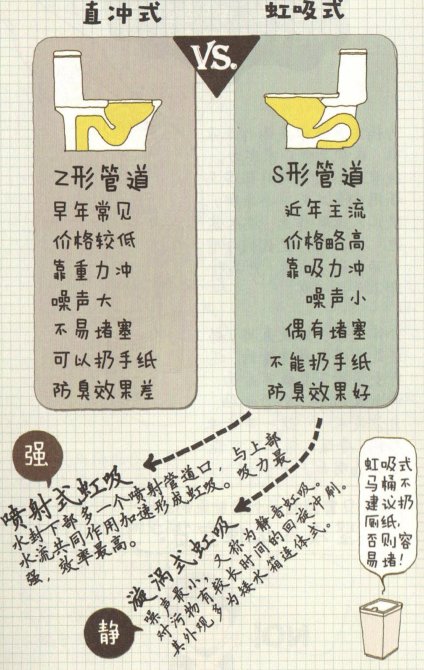 直冲式
虹吸式
VS.
Z形管道
早年常见
价格较低
靠重力冲
噪声大
不易堵塞
可以扔手纸
防臭效果差
S形管道
近年主流
价格略高
靠吸力冲
噪声小
偶有堵塞
不能扔手纸
防臭效果好
强
喷射式虹吸
水封下部多一个喷射管道口，与上部
水流共同作用加速形成虹吸。吸力最
强，效率最高。
静
漩涡式虹吸
噪声最小，又称为静音虹吸。
对污物有较长时间的回旋冲刷。
其外观多为矮水箱连体式。
虹吸式
马桶不
建议扔
厕纸，
否则容
易堵！